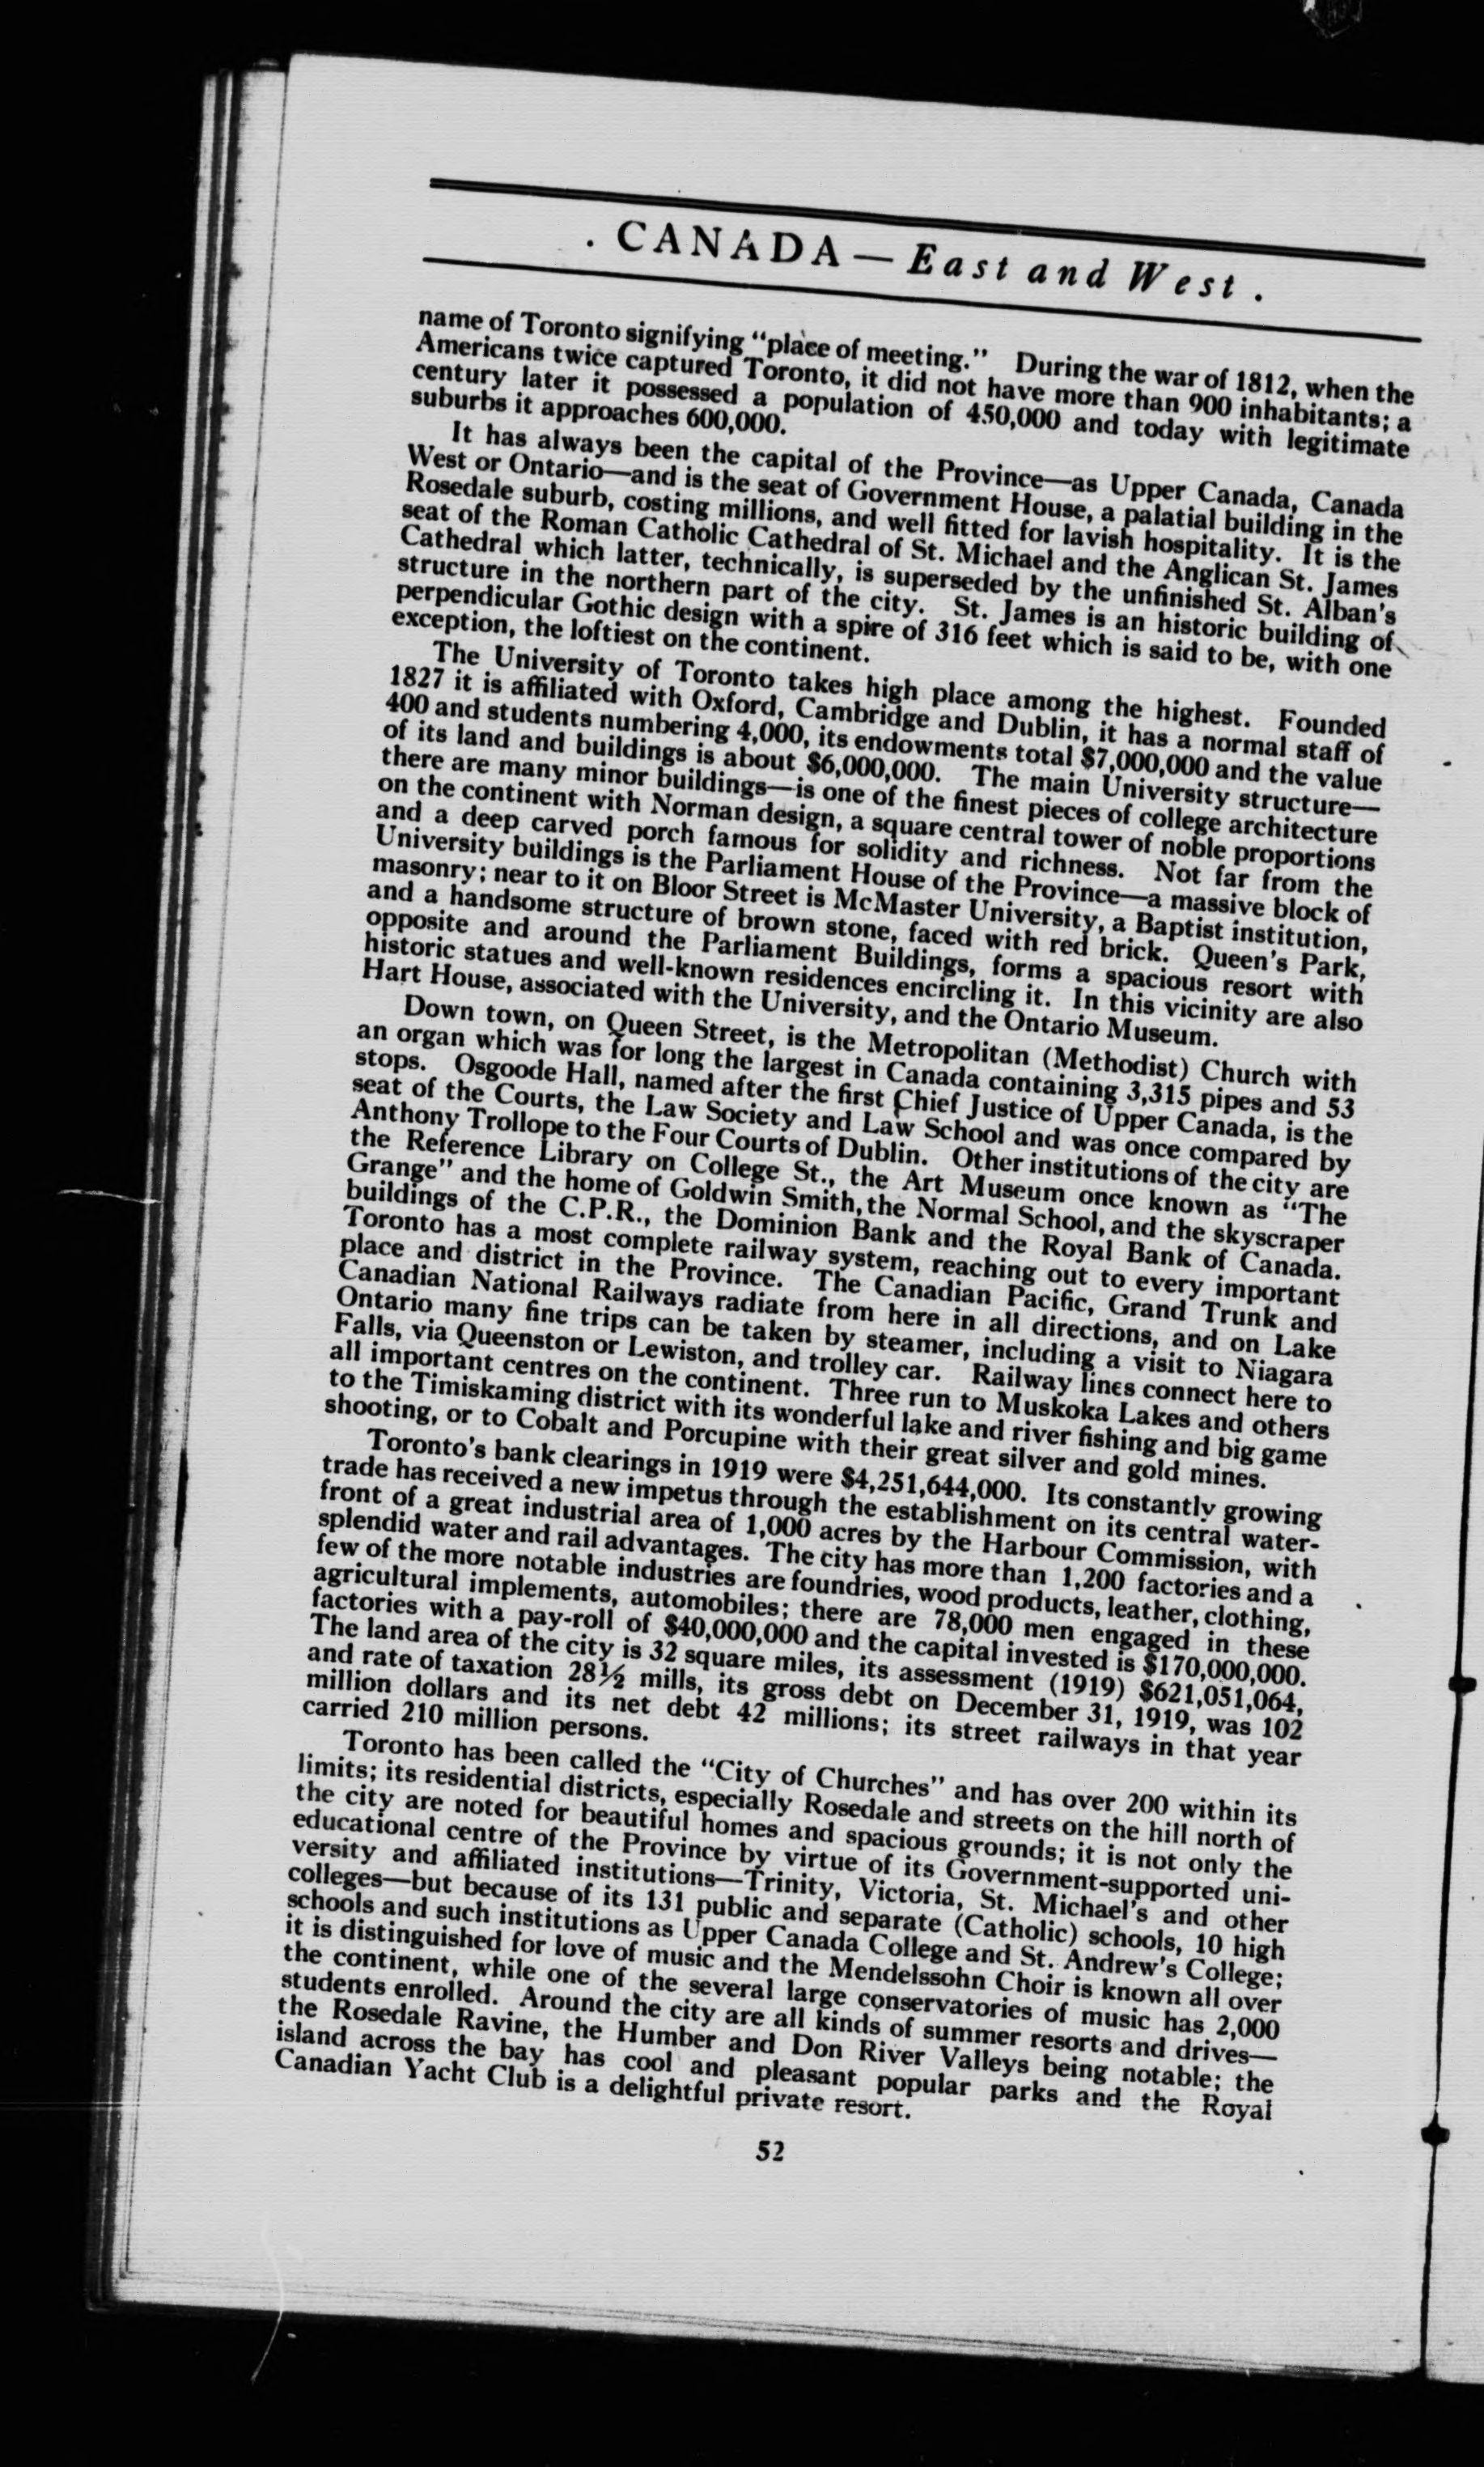 . CANADA — East and West .
name of Toronto signifying "place of meeting." During the war of 1812, when the
Americans twice captured Toronto, it did not have more than 900 inhabitants; a
century later it possessed a population of 450,000 and today with legitimate
suburbs it approaches 600,000.
It has always been the capital of the Province—as Upper Canada, Canada
West or Ontario—and is the seat of Government House, a palatial building in the
Rosedale suburb, costing millions, and well fitted for lavish hospitality. It is the
seat of the Roman Catholic Cathedral of St. Michael and the Anglican St. James
Cathedral which latter, technically, is superseded by the unfinished St. Alban's
structure in the northern part of the city. St. James is an historic building of
perpendicular Gothic design with a spire of 316 feet which is said to be, with one
exception, the loftiest on the continent.
The University of Toronto takes high place among the highest. Founded
1827 it is affiliated with Oxford, Cambridge and Dublin, it has a normal staff of
400 and students numbering 4,000, its endowments total $7,000,000 and the value
of its land and buildings is about $6,000,000. The main University structure—
there are many minor buildings—is one of the finest pieces of college architecture
on the continent with Norman design, a square central tower of noble proportions
and a deep carved porch famous for solidity and richness. Not far from the
University buildings is the Parliament House of the Province—a massive block of
masonry; near to it on Bloor Street is McMaster University, a Baptist institution,
and a handsome structure of brown stone, faced with red brick. Queen's Park,
opposite and around the Parliament Buildings, forms a spacious resort with
historic statues and well-known residences encircling it. In this vicinity are also
Hart House, associated with the University, and the Ontario Museum.
Down town, on Queen Street, is the Metropolitan (Methodist) Church with
an organ which was for long the largest in Canada containing 3,315 pipes and 53
stops. Osgoode Hall, named after the first Chief Justice of Upper Canada, is the
seat of the Courts, the Law Society and Law School and was once compared by
Anthony Trollope to the Four Courts of Dublin. Other institutions of the city are
the Reference Library on College St., the Art Museum once known as "The
Grange" and the home of Goldwin Smith, the Normal School, and the skyscraper
buildings of the C.P.R., the Dominion Bank and the Royal Bank of Canada.
Toronto has a most complete railway system, reaching out to every important
place and district in the Province. The Canadian Pacific, Grand Trunk and
Canadian National Railways radiate from here in all directions, and on Lake
Ontario many fine trips can be taken by steamer, including a visit to Niagara
Falls, via Queenston or Lewiston, and trolley car. Railway lines connect here to
all important centres on the continent. Three run to Muskoka Lakes and others
to the Timiskaming district with its wonderful lake and river fishing and big game
shooting, or to Cobalt and Porcupine with their great silver and gold mines.
Toronto's bank clearings in 1919 were $4,251,644,000. Its constantly growing
trade has received a new impetus through the establishment on its central water-
front of a great industrial area of 1,000 acres by the Harbour Commission, with
splendid water and rail advantages. The city has more than 1,200 factories and a
few of the more notable industries are foundries, wood products, leather, clothing,
agricultural implements, automobiles; there are 78,000 men engaged in these
factories with a pay-roll of $40,000,000 and the capital invested is $170,000,000.
The land area of the city is 32 square miles, its assessment (1919) $621,051,064,
and rate of taxation 28½ mills, its gross debt on December 31, 1919, was 102
million dollars and its net debt 42 millions; its street railways in that year
carried 210 million persons.
Toronto has been called the "City of Churches" and has over 200 within its
limits; its residential districts, especially Rosedale and streets on the hill north of
the city are noted for beautiful homes and spacious grounds; it is not only the
educational centre of the Province by virtue of its Government-supported uni-
versity and affiliated institutions—Trinity, Victoria, St. Michael's and other
colleges—but because of its 131 public and separate (Catholic) schools, 10 high
schools and such institutions as Upper Canada College and St. Andrew's College;
it is distinguished for love of music and the Mendelssohn Choir is known all over
the continent, while one of the several large conservatories of music has 2,000
students enrolled. Around the city are all kinds of summer resorts and drives—
the Rosedale Ravine, the Humber and Don River Valleys being notable; the
island across the bay has cool and pleasant popular parks and the Royal
Canadian Yacht Club is a delightful private resort.
52